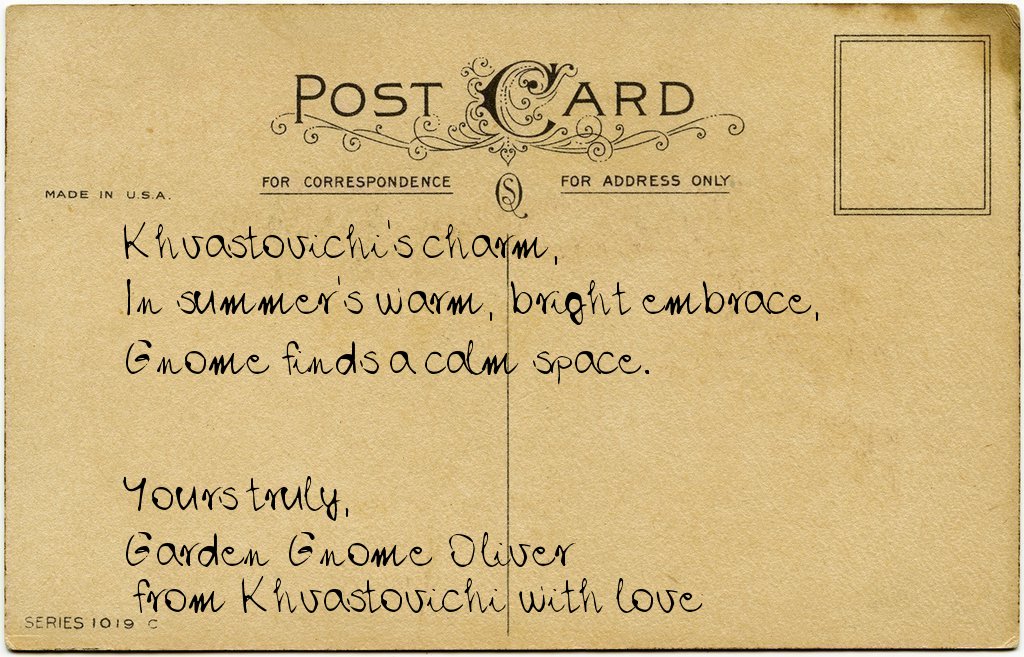 POST CARD
FOR CORRESPONDENCE
FOR ADDRESS ONLY
MADE IN U.S.A.
Khvastovichi's charm,
In summer's warm, bright embrace,
Gnome finds a calm space.
Yours truly,
Garden Gnome Oliver
from Khvastovichi with love
SERIES 1019 C